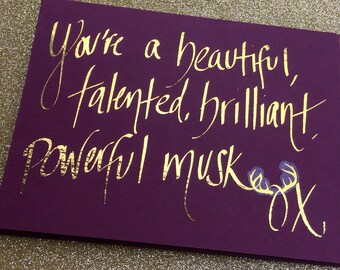 You're a beautiful,
talented, brilliant,
powerful musk ox.